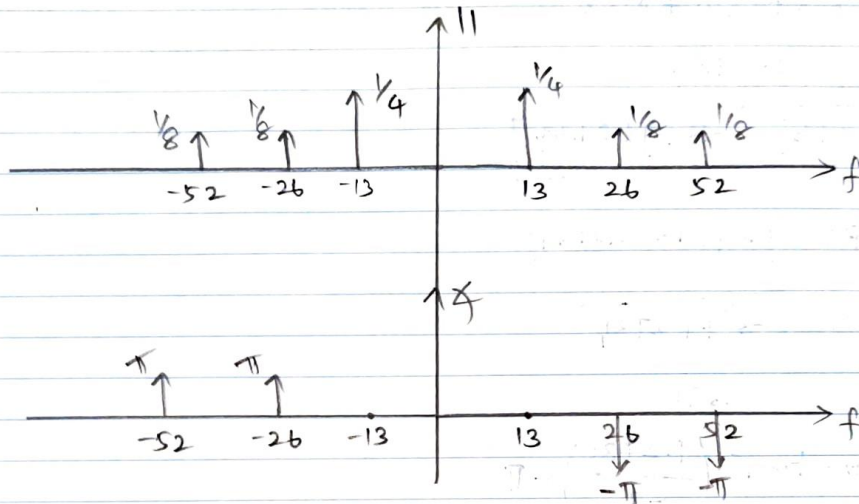 ||
1/8 1/8 1/4 1/4 1/8 1/8
-52 -26 -13 13 26 52 f
∡
π π
-52 -26 -13 13 26 52 f
-π -π